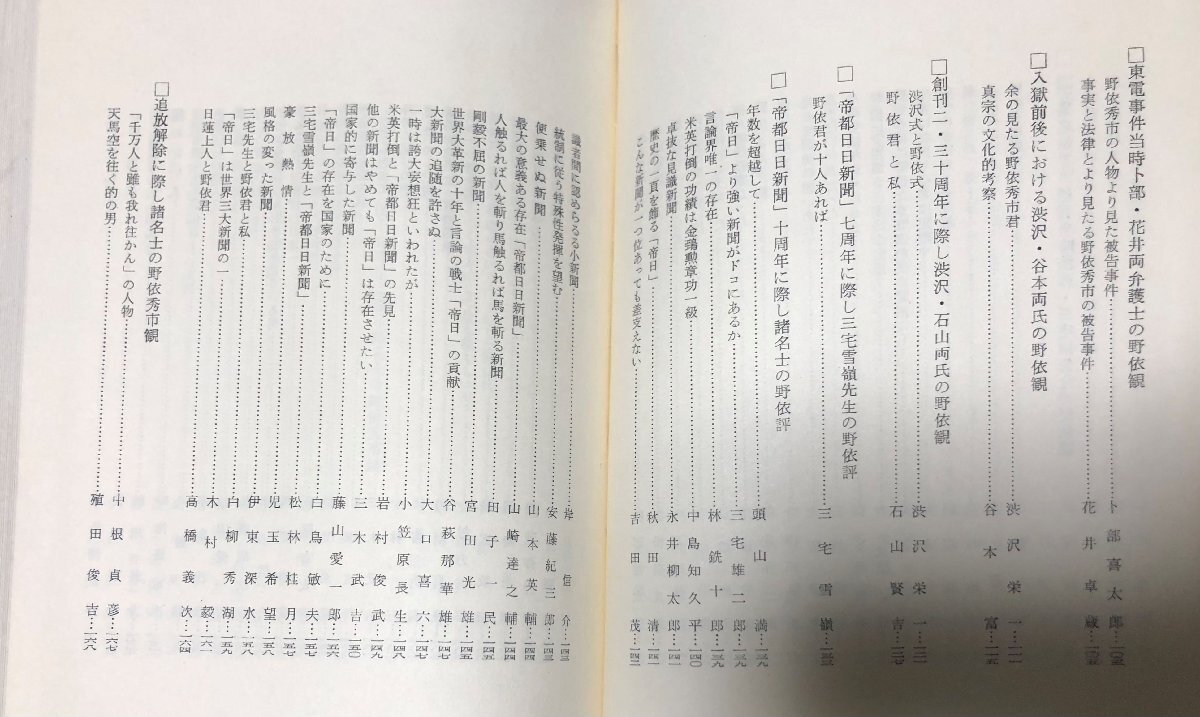 □東電事件当時卜部・花井両弁護士の野依観
野依秀市の人物より見た被告事件……卜部喜太郎…一〇五
事実と法律とより見たる野依秀市の被告事件……花井卓蔵…一〇五
□入獄前後における渋沢・谷本両氏の野依観
余の見たる野依秀市君……渋沢栄一…一一一
真宗の文化的考察……谷本富…一一五
□創刊二・三十周年に際し渋沢・石山両氏の野依観
渋沢式と野依式……渋沢栄一…一二一
野依君と私……石山賢吉…一二七
□「帝都日日新聞」七周年に際し三宅雪嶺先生の野依評
野依君が十人あれば……三宅雪嶺…一三三
□「帝都日日新聞」十周年に際し諸名士の野依評
年数を超越して……頭山満…一三九
「帝日」より強い新聞がドコにあるか……三宅雄二郎…一三九
言論界唯一の存在……林銑十郎…一三九
米英打倒の功績は金鵄勲章功一級……中島知久平…一四〇
卓抜な見識新聞……永井柳太郎…一四一
歴史の一頁を飾る「帝日」……秋田清…一四一
こんな新聞が一つ位あっても差支えない……吉田茂…一四二
識者間に認められる小新聞……岸信介…一四三
統制に従う特殊性発揮を望む……安藤紀三郎…一四三
便乗せぬ新聞……山本英輔…一四四
最大の意義ある存在「帝都日日新聞」……山崎達之輔…一四四
人触るれば人を斬り馬触るれば馬を斬る新聞……田子一民…一四五
剛毅不屈の新聞……宮田光雄…一四五
世界大革新の十年と言論の戦士「帝日」の貢献……谷萩那華雄…一四七
大新聞の追随を許さぬ……大口喜六…一四七
一時は誇大妄想狂といわれたが……小笠原長生…一四八
米英打倒と「帝都日日新聞」の先見……岩村俊武…一四九
他の新聞はやめても「帝日」は存在させたい……三木武吉…一五〇
国家的に寄与した新聞……藤山愛一郎
「帝日」の存在を国家のために……白鳥敏夫
三宅雪嶺先生と「帝都日日新聞」……松林桂月…一五七
豪放熱情……児玉希望…一五八
風格の変った新聞……伊東深水…一五八
三宅先生と野依君と私……白柳秀湖…一五九
「帝日」は世界三大新聞の一……木村毅
日蓮上人と野依君……高橋義次…一六四
□追放解除に際し諸名士の野依秀市観
「千万人と雖も我れ往かん」の人物……中根貞彦…一六七
天馬空を往く的の男……殖田俊吉…一六八